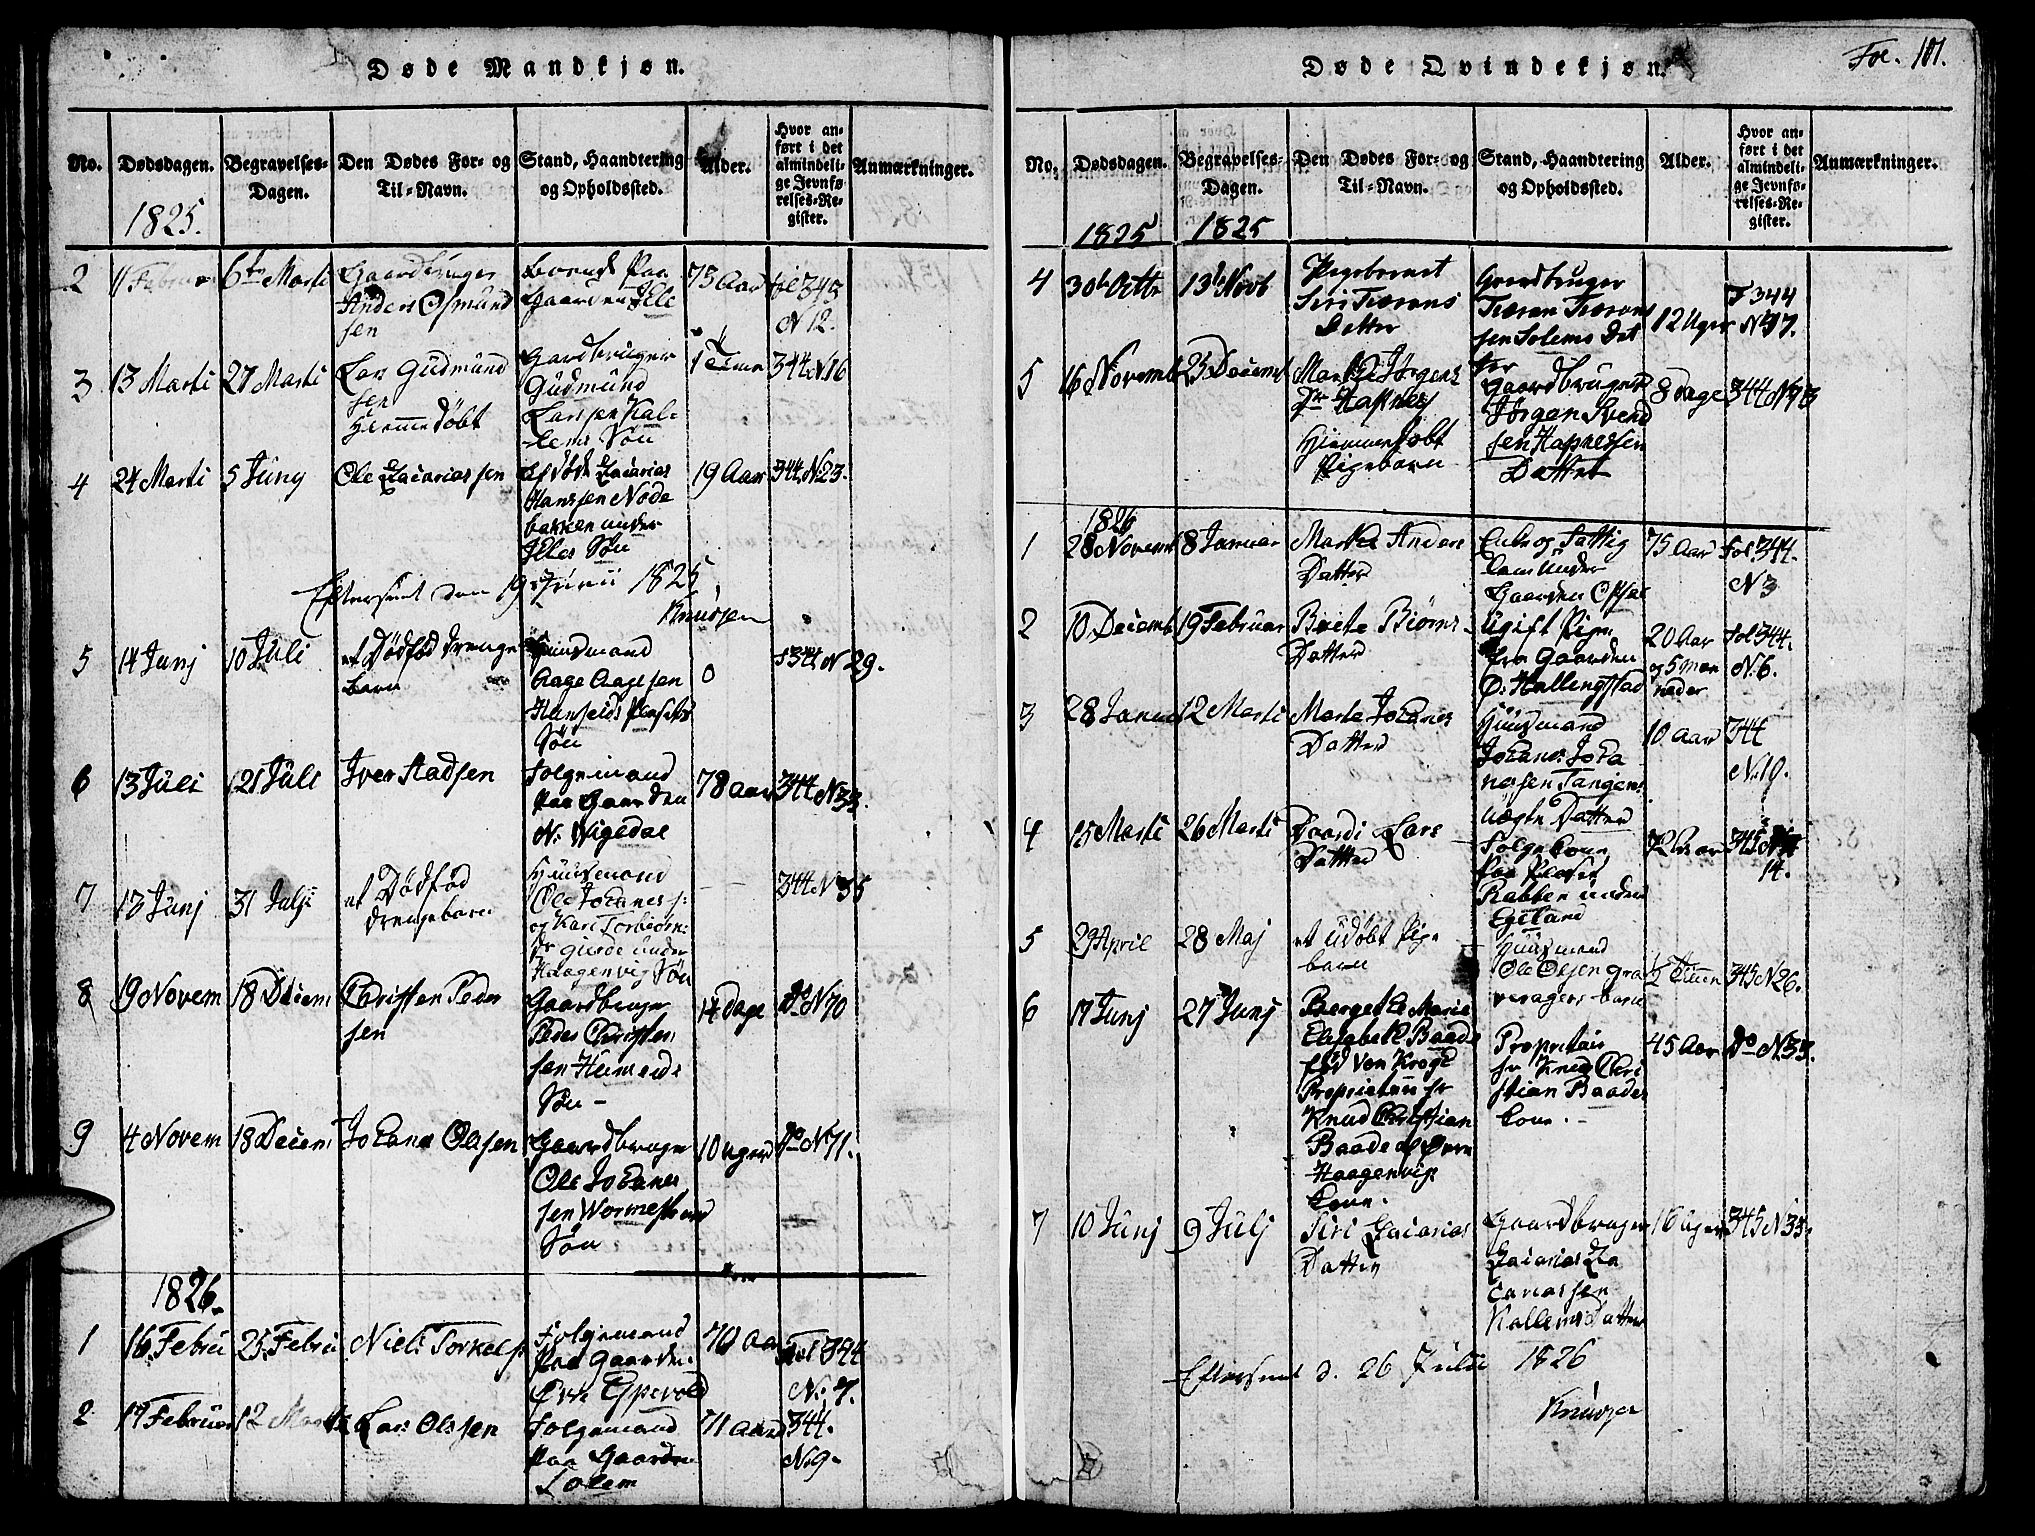 Døde Mandkjøn.
No.
Dødsdagen.
Begravelses-
Dagen.
Den Dødes For- og
Til-Navn.
Stand, Haandtering
og Opholdssted.
Alder.
Hvor an-
ført i det
almindeli-
ge Jevnfø-
relses-Re-
gister.
Anmærkninger.
1825.
2
11 Februar
6te Marti
Gaardbruger
Anders Osmund
sen
boende Paa
Gaarden
75 Aar
fol 343
N 12.
3
13 Marti
27 Marti
Lars Gudmund
sen
Hiemmedøbt
Gardbruger
Gudmund
Larssen Kal-
lems Søn
1 Time
344 N 16
4
24 Marti
5 Juny
Ole Zacariassen
Afdøde Zacarias
Hanssen Node
bakken under
Søn
19 Aar
344 N 23.
Efterseet den 19 Junii 1825
Knudsen
5
14 Junj
10 Juli
et Dødfød Drenge
barn
Huusmand
Aage Aagesen
Søn
0
f 344 N 29.
6
13 Juli
Iver Aadsen
Folgemand
Paa Gaarden
N. Vigedal
78 Aar
344 N 33.
7
13 Junj
31 Julj
et Dødfød
Drengebarn
Huusmand
Ole Johanes s:
og Kari Torbiørn:
Dr under
Haagenvig Søn
344 N 35
8
19 Novem
18 Decem
Christen Peder
sen
Gaardbruger
Peder Christen
sen
Søn -
14 Dage
Do N 70
9
4 Novem
18 Decem
Johanes Olsen
Gaardbruger
Ole Johanes
sen Wormestrand
Søn
10 uger
Do N 71.
1826.
1
16 Febru
25 Febru
Niels Torkels
Folgemand
Paa Gaarden
Espevold
70 Aar
Fol 344
N. 7.
2
17 Februar
12 Marti
Lars Olssen
Folgemand
Paa Gaarden
Solem
71 Aar
344.
N 9.
Døde Qvindekjøn.
Fol. 101.
No.
Dødsdagen.
Begravelses-
Dagen.
Den Dødes For- og
Til-Navn.
Stand, Haandtering
og Opholdssted.
Alder.
Hvor an-
ført i det
almindeli-
ge Jevnfø-
relses-Re-
gister.
Anmærkninger.
1825
1825
4
30te Octbr
13de Novb
Pigebarnet
Siri
Datter
Gaardbruger
sen Solems Dat
ter
12 Uger
F 344
5
16 Novemb
25 Decemb
Jørgens
Dr Hafnes
Hjemmedøbt
Pigebarn
Gaardbruger
Jørgen Svend
sen Hapnessen
Datter
8 Dage
344 N 73
1826
1
28 Novemb
8 Januar
Marte Anders
Datter
Enke og Fattig
Lem under
Gaarden
75 Aar
Fol 344.
N 3
2
10 Decemb
19 Februar
Berte Biørns
Datter
Ugift Pige
fra Gaarden
Ø. Hallingstad
20 Aar
og 5 maa
neder
fol 344.
N. 6.
3
28 Januar
12 Marti
Marte Johanes
Datter
Huusmand
Johanes Joha
nessen Tangens
ægte Datter
10 Aar
344
N. 19.
4
15 Marti
26 Marti
Lars
Datter
Folgekone
Paa Pladset
Rabben under
Egeland
72 Aar
345
14.
5
29 April
28 Maj
et udøbt Pige
barn
Huusmand
Ole Olsen
barn
1/2 Time
345 N 26.
6
17 Junj
27 Junj
Bergethe Marie
Elisabeth Baade
fød von Krogh
Proprietær hr
Knud Christian
Baade af Øvre
Haagenvigs
kone.
Proprietair
hr Knud Chri
stian Baades
kone. -
45 Aar
Do N. 33.
7
10 Junj
9 Julj
Siri Zacarias
Datter
Gaardbruger
Zacarias Za
cariassen
Kallems Datter
16 Uger
345 N 35.
Efterseet d. 26 Julii 1826
Knudsen